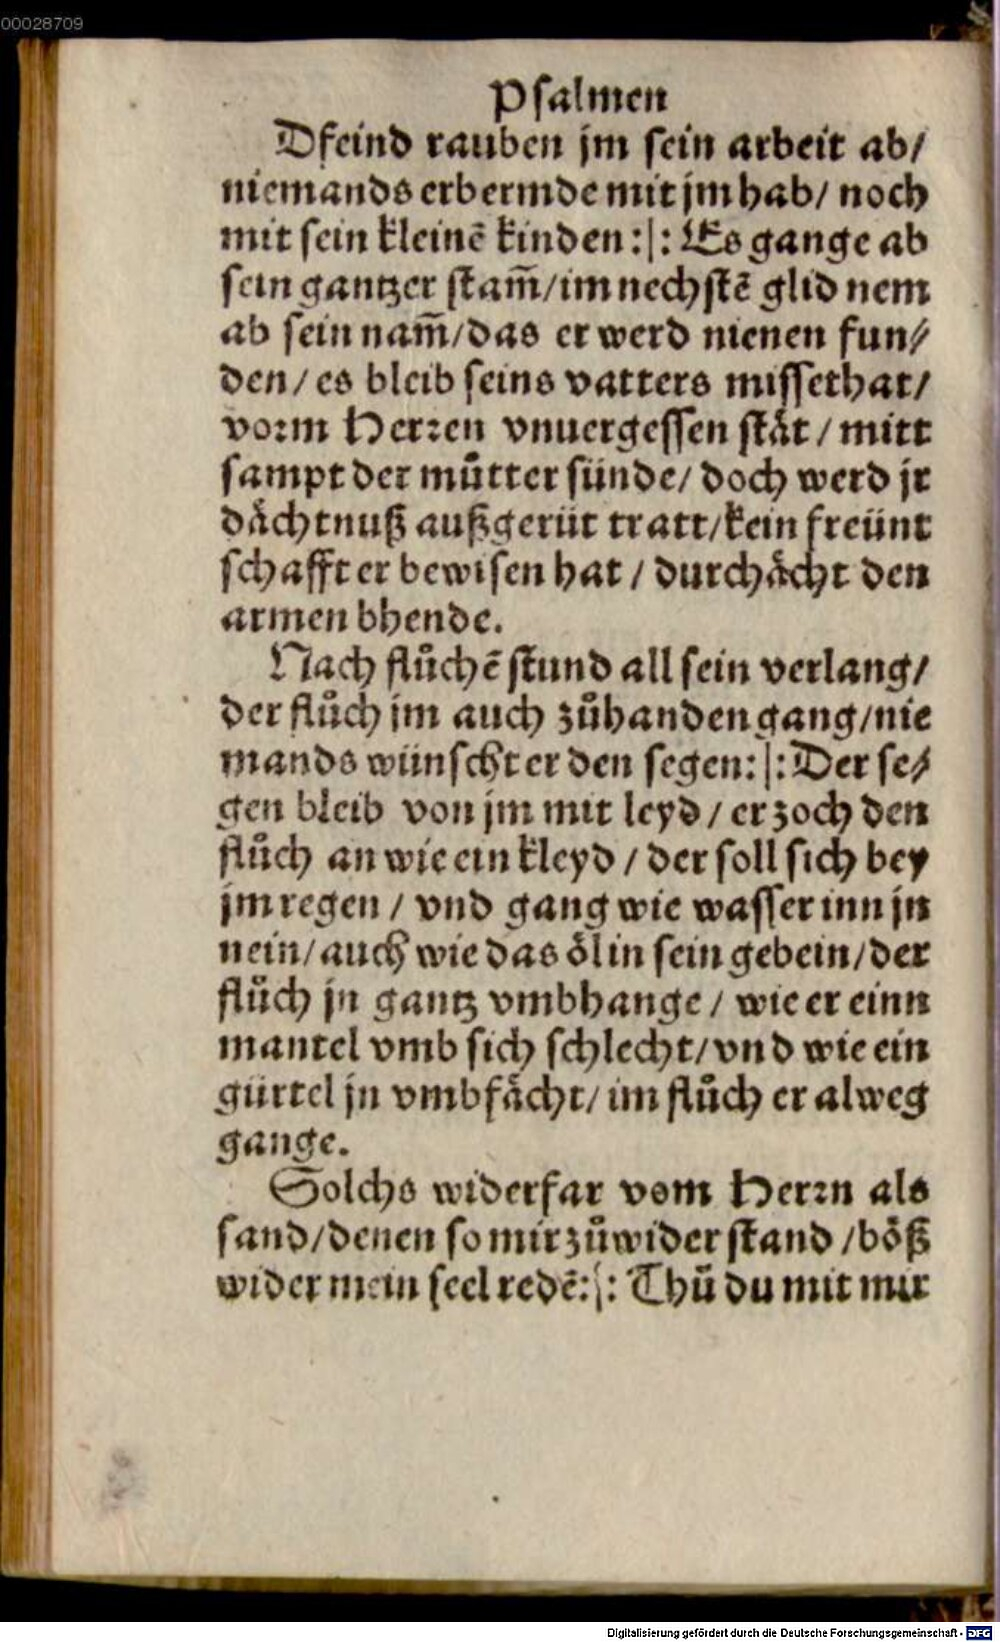 00028709
Psalmen
Dfeind rauben jm sein arbeit ab/
niemands erbermde mit jm hab/ noch
mit sein kleinē kinden :|: Es gange ab
sein gantzer stam̄/im nechstē glid nem
ab sein nam̄/das er werd nienen fun⸗
den/ es bleib seins vatters missethat/
vorm Herren vnuergessen stät / mitt
sampt der muͦtter sünde/ doch werd jr
dächtnuß außgerüt tratt/kein freünt
schafft er bewisen hat / durchächt den
armen bhende.
Nach fluͦchē stund all sein verlang/
der fluͦch jm auch zuͦhanden gang/nie
mands wünscht er den segen: |: Der se⸗
gen bleib von jm mit leyd / er zoch den
fluͦch an wie ein kleyd / der soll sich bey
jm regen / vnd gang wie wasser inn jn
nein/auch wie das öl in sein gebein/der
fluͦch jn gantz vmbhange / wie er einn
mantel vmb sich schlecht/vnd wie ein
gürtel jn vmbfächt/ im fluͦch er alweg
gange.
Solchs widerfar vom Herrn als
sand/denen so mir zuͦwider stand /böß
wider mein seel redē:|: Thuͦ du mit mir
Digitalisierung gefördert durch die Deutsche Forschungsgemeinschaft - DFG